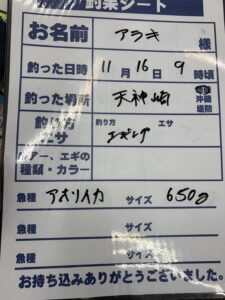 釣果シート
お名前 アラキ 様
釣った日時 11月16日9時頃
釣った場所 天神崎 沖磯 堤防
釣り方 エサ 釣り方 エギング エサ
ルアー、エギの種類・カラー
魚種 アオリイカ サイズ 650g
魚種 サイズ
魚種 サイズ
お持ち込みありがとうございました。